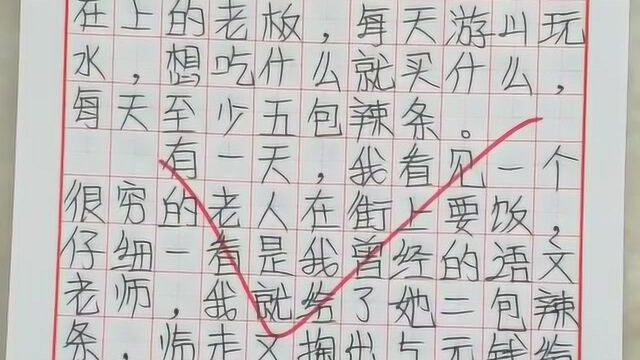 在上的老板，每天游山玩
水，想吃什么就买什么，
每天至少五包辣条。
有一天，我看见一个
很穷的老人在街上要饭，
仔细一看是我曾经的语文
老师，我就给了她二包辣
条，临走又掏出5元钱给